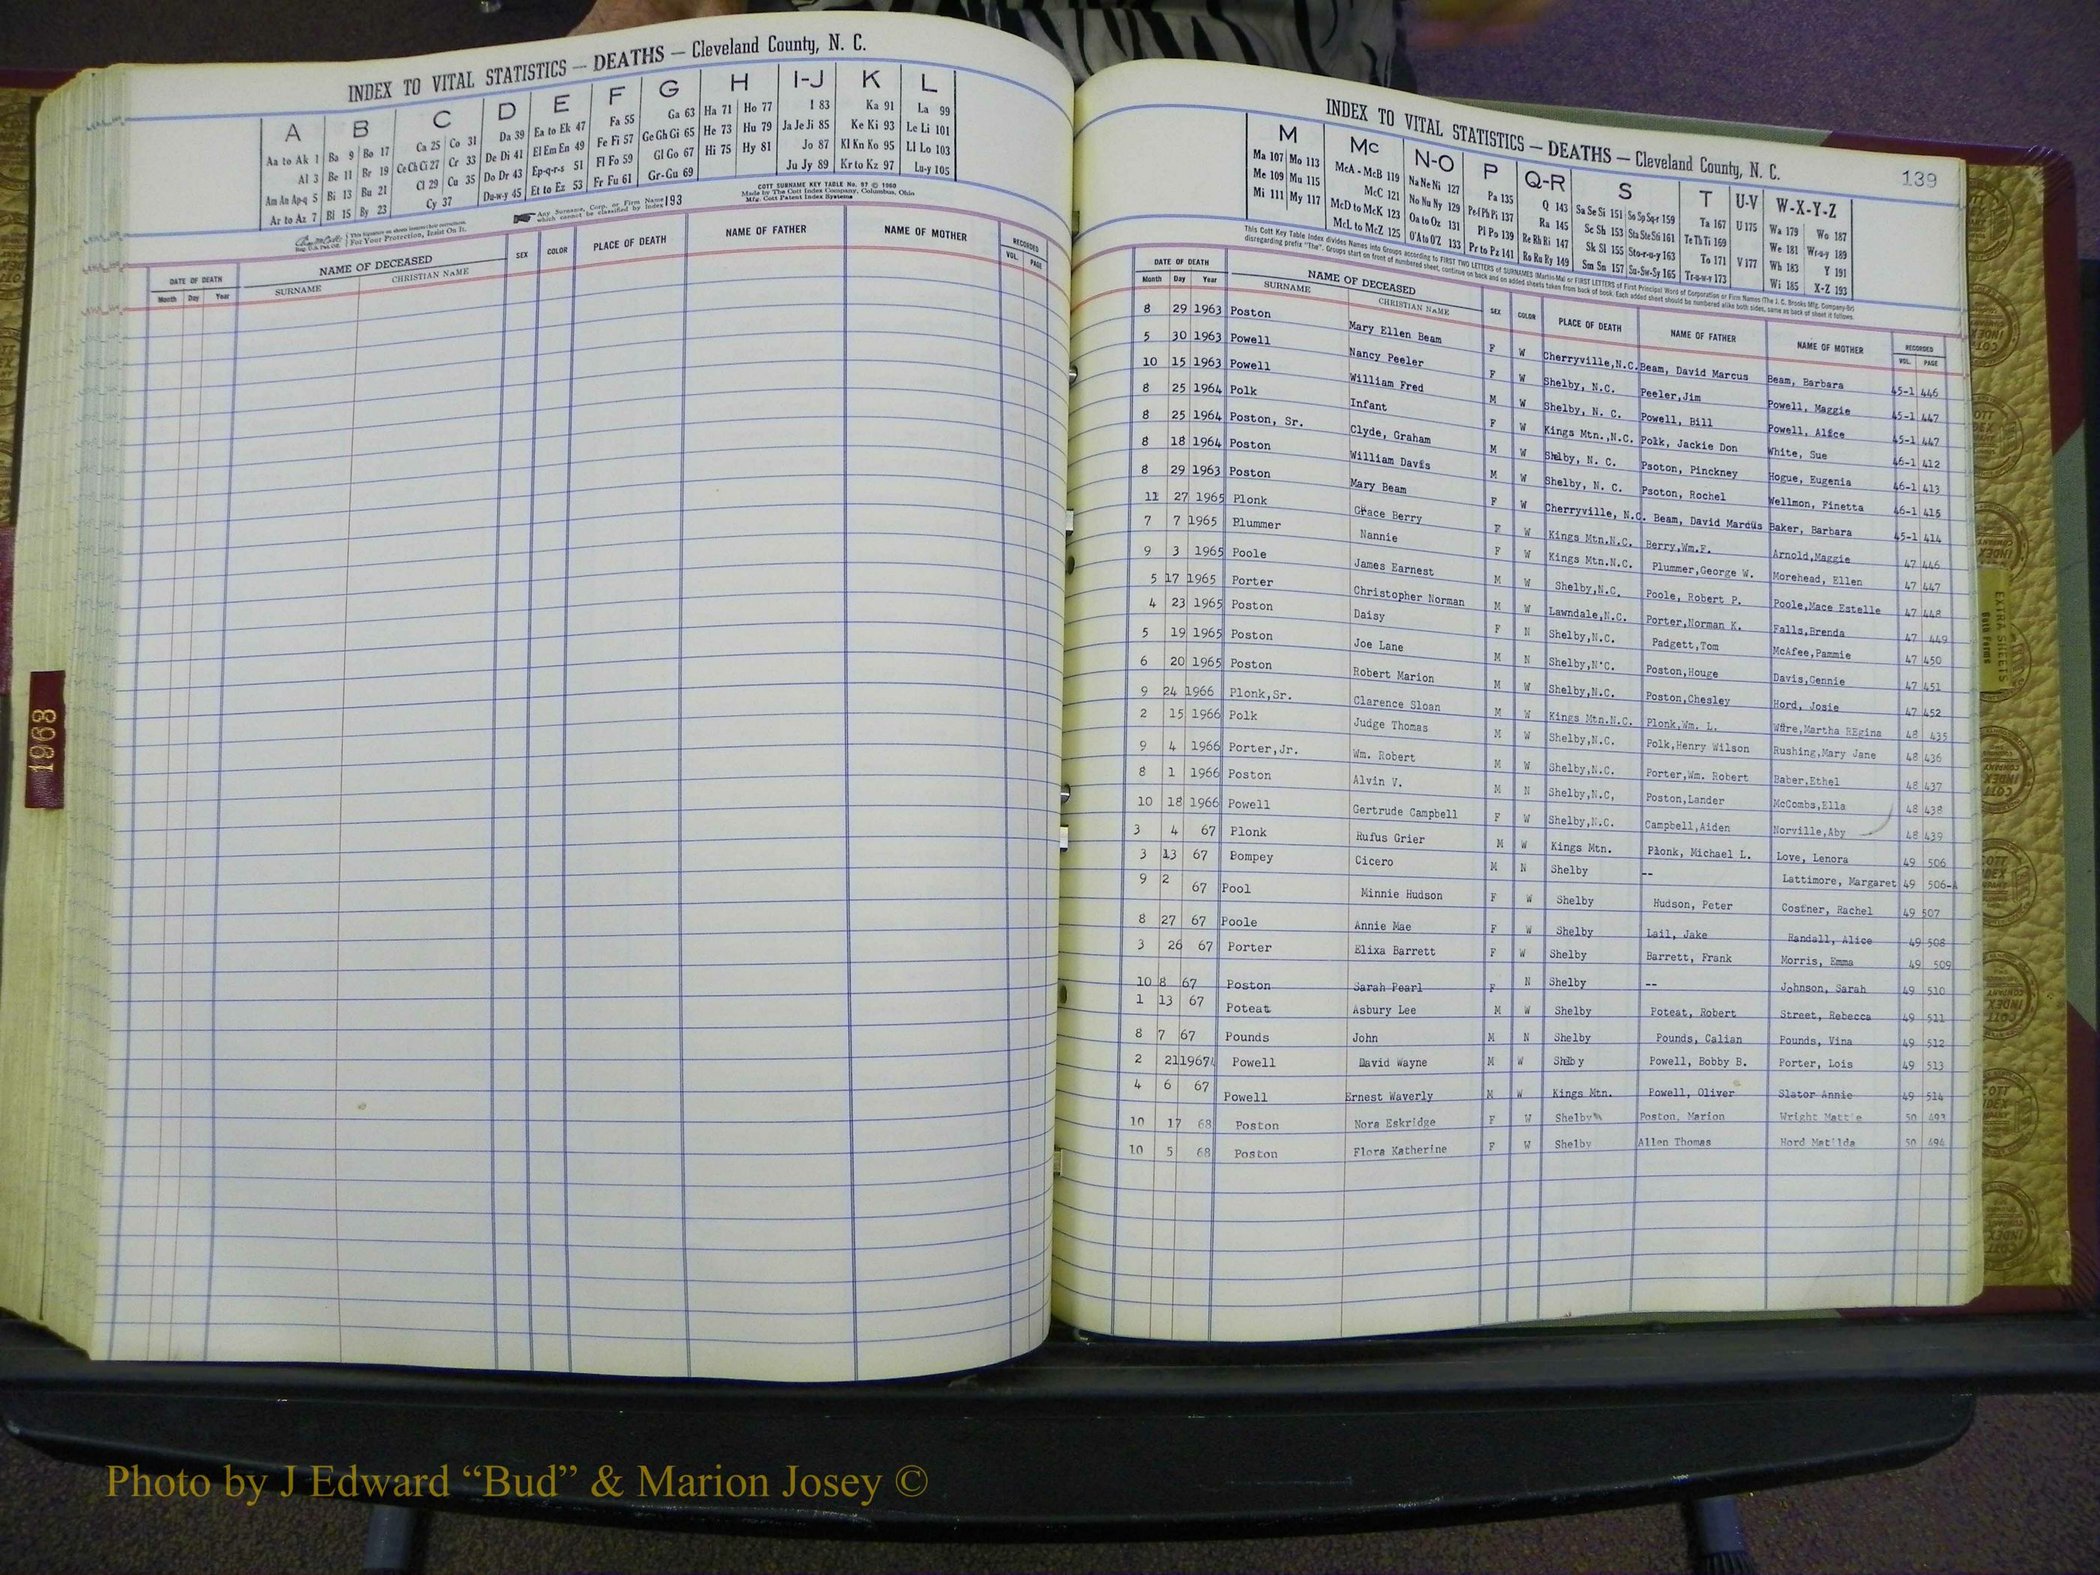 INDEX TO VITAL STATISTICS — DEATHS — Cleveland County, N. C.
A B C D E F G H I-J K L
Aa to Ak 1 Ba 9 Bo 17 Ca 25 Co 31 Da 39 Ea to Ek 47 Fa 55 Ga 63 Ha 71 Ho 77 I 83 Ka 91 La 99
Al 3 Be 11 Br 19 Ce Ch Ci 27 Cr 33 De Di 41 El Em En 49 Fe Fi 57 Ge Gh Gi 65 He 73 Hu 79 Ja Je Ji 85 Ke Ki 93 Le Li 101
Am An Ap-q 5 Bi 13 Bu 21 Cl 29 Cu 35 Do Dr 43 Ep-q-r-s 51 Fl Fo 59 Gl Go 67 Hi 75 Hy 81 Jo 87 Kl Kn Ko 95 Ll Lo 103
Ar to Az 7 Bl 15 By 23 Cy 37 Du-w-y 45 Et to Ez 53 Fr Fu 61 Gr-Gu 69 Ju Jy 89 Kr to Kz 97 Lu-y 105
For Your Protection, Insist On It.
Any Surname, Corp. or Firm Name which cannot be classified by index 193
COTT SURNAME KEY TABLE No. 97 © 1960
Made by The Cott Index Company, Columbus, Ohio
Mfg. Cott Patent Index Systems
DATE OF DEATH NAME OF DECEASED SEX COLOR PLACE OF DEATH NAME OF FATHER NAME OF MOTHER RECORDED
Month Day Year SURNAME CHRISTIAN NAME VOL. PAGE
1968
INDEX TO VITAL STATISTICS — DEATHS — Cleveland County, N. C. 139
M Mc N-O P Q-R S T U-V W-X-Y-Z
Ma 107 Mo 113 McA - McB 119 Na Ne Ni 127 Pa 135 Q 143 Sa Se Si 151 So Sp Sq-r 159 Ta 167 U 175 Wa 179 Wo 187
Me 109 Mu 115 McC 121 No Nu Ny 129 Pe-f Ph Pi 137 Ra 145 Sc Sh 153 Sta Ste Sti 161 Te Th Ti 169 We 181 Wr-u-y 189
Mi 111 My 117 McD to McK 123 Oa to Oz 131 Pl Po 139 Re Rh Ri 147 Sk Sl 155 Sto-r-u-y 163 To 171 V 177 Wh 183 Y 191
McL to McZ 125 O'A to O'Z 133 Pr to Pz 141 Ro Ru Ry 149 Sm Sn 157 Su-Sw-Sy 165 Tr-u-w-y 173 Wi 185 X-Z 193
This Cott Key Table Index divides Names into Groups according to FIRST TWO LETTERS of SURNAMES (Martin-Ma) or FIRST LETTERS of First Principal Word of Corporation or Firm Names (The J. C. Brooks Mfg. Company-Br)
disregarding prefix "The". Groups start on front of numbered sheet, continue on back and on added sheets taken from back of book. Each added sheet should be numbered alike both sides, same as back of sheet it follows.
DATE OF DEATH NAME OF DECEASED SEX COLOR PLACE OF DEATH NAME OF FATHER NAME OF MOTHER RECORDED
Month Day Year SURNAME CHRISTIAN NAME VOL. PAGE
8 29 1963 Poston Mary Ellen Beam F W Cherryville,N.C. Beam, David Marcus Beam, Barbara 45-1 446
5 30 1963 Powell Nancy Peeler F W Shelby, N.C. Peeler,Jim Powell, Maggie 45-1 447
10 15 1963 Powell William Fred M W Shelby, N. C. Powell, Bill Powell, Alice 45-1 447
8 25 1964 Polk Infant F W Kings Mtn.,N.C. Polk, Jackie Don White, Sue 46-1 412
8 25 1964 Poston, Sr. Clyde, Graham M W Shelby, N. C. Psoton, Pinckney Hogue, Eugenia 46-1 413
8 18 1964 Poston William Davis M W Shelby, N. C. Psoton, Rochel Wellmon, Finetta 46-1 415
8 29 1963 Poston Mary Beam F W Cherryville, N.C. Beam, David Marcus Baker, Barbara 45-1 414
11 27 1965 Plonk Grace Berry F W Kings Mtn.N.C. Berry,Wm.F. Arnold,Maggie 47 446
7 7 1965 Plummer Nannie F W Kings Mtn.N.C. Plummer,George W. Morehead, Ellen 47 447
9 3 1965 Poole James Earnest M W Shelby,N.C. Poole, Robert P. Poole,Mace Estelle 47 448
5 17 1965 Porter Christopher Norman M W Lawndale,N.C. Porter,Norman K. Falls,Brenda 47 449
4 23 1965 Poston Daisy F N Shelby,N.C. Padgett,Tom McAfee,Pammie 47 450
5 19 1965 Poston Joe Lane M N Shelby,N.C. Poston,Houge Davis,Cennie 47 451
6 20 1965 Poston Robert Marion M W Shelby,N.C. Poston,Chesley Hord, Josie 47 452
9 24 1966 Plonk,Sr. Clarence Sloan M W Kings Mtn.N.C. Plonk,Wm. L. Ware,Martha REgina 48 435
2 15 1966 Polk Judge Thomas M W Shelby,N.C. Polk,Henry Wilson Rushing,Mary Jane 48 436
9 4 1966 Porter,Jr. Wm. Robert M W Shelby,N.C. Porter,Wm. Robert Baber,Ethel 48 437
8 1 1966 Poston Alvin V. M N Shelby,N.C, Poston,Lander McCombs,Ella 48 438
10 18 1966 Powell Gertrude Campbell F W Shelby,N.C. Campbell,Aiden Norville,Aby 48 439
3 4 67 Plonk Rufus Grier M W Kings Mtn. Plonk, Michael L. Love, Lenora 49 506
3 13 67 Pompey Cicero M N Shelby -- Lattimore, Margaret 49 506-A
9 2 67 Pool Minnie Hudson F W Shelby Hudson, Peter Costner, Rachel 49 507
8 27 67 Poole Annie Mae F W Shelby Lail, Jake Randall, Alice 49 508
3 26 67 Porter Elixa Barrett F W Shelby Barrett, Frank Morris, Emma 49 509
10 8 67 Poston Sarah Pearl F N Shelby -- Johnson, Sarah 49 510
1 13 67 Poteat Asbury Lee M W Shelby Poteat, Robert Street, Rebecca 49 511
8 7 67 Pounds John M N Shelby Pounds, Calian Pounds, Vina 49 512
2 21 1967 Powell David Wayne M W Shelby Powell, Bobby B. Porter, Lois 49 513
4 6 67 Powell Ernest Waverly M W Kings Mtn. Powell, Oliver Slator Annie 49 514
10 17 68 Poston Nora Eskridge F W Shelby Poston, Marion Wright Mattie 50 493
10 5 68 Poston Flora Katherine F W Shelby Allen Thomas Hord Matilda 50 494
EXTRA SHEETS
Photo by J Edward “Bud” & Marion Josey ©